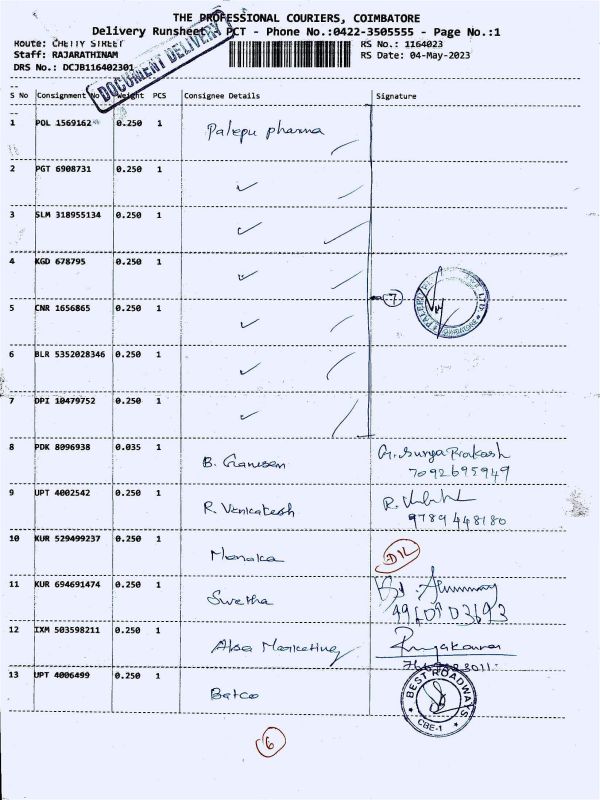 THE PROFESSIONAL COURIERS, COIMBATORE
Delivery Runsheet PCT - Phone No.:0422-3505555 - Page No.:1
Route: CHETTY STREET RS No.: 1164023
Staff: RAJARATHINAM RS Date: 04-May-2023
DRS No.: DCJB116402301
DOCUMENT DELIVERY
S No Consignment No Weight PCS Consignee Details Signature
1 POL 1569162 0.250 1 Palepu pharma
2 PGT 6908731 0.250 1 ✓
3 SLM 318955134 0.250 1 ✓
4 KGD 678795 0.250 1 ✓
7
5 CNR 1656865 0.250 1 ✓
6 BLR 5352028346 0.250 1 ✓
7 DPI 10479752 0.250 1 ✓
8 PDK 8096938 0.035 1 B. Ganesan G. Surya Prakash
7092695949
9 UPT 4002542 0.250 1 R. Venkatesh R.
9789448180
10 KUR 529499237 0.250 1 Monaka D/L
11 KUR 694691474 0.250 1 Swetha
12 IXM 503598211 0.250 1 Marketing
13 UPT 4006499 0.250 1 Batco
BEST ROADWAYS
CBE-1
6